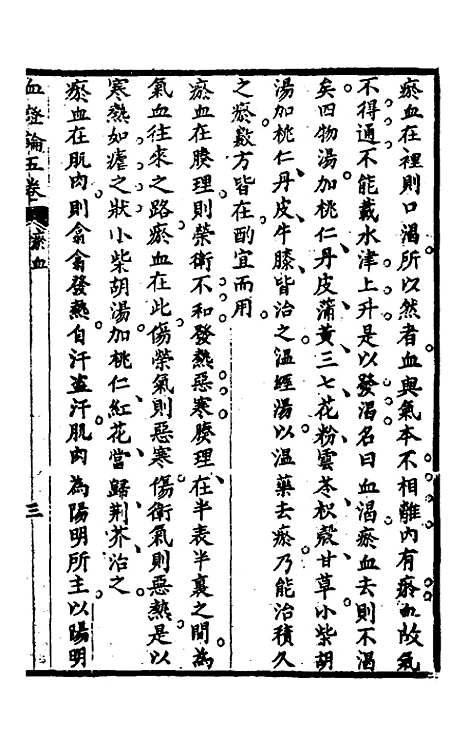 瘀血在裡則口渴所以然者血與氣本不相離內有瘀血故氣
不得通不能載水津上升是以發渴名曰血渴瘀血去則不渴
矣四物湯加桃仁丹皮蒲黃三七花粉雲苓枳殼甘草小柴胡
湯加桃仁丹皮牛膝皆治之温經湯以温藥去瘀乃能治積久
之瘀數方皆在酌宜而用
瘀血在腠理則榮衛不和發熱惡寒腠理在半表半裏之間為
氣血往來之路瘀血在此傷榮氣則惡寒傷衛氣則惡熱是以
寒熱如瘧之狀小柴胡湯加桃仁紅花當歸荆芥治之
瘀血在肌肉則翕翕發熱自汗盜汗肌肉為陽明所主以陽明
血證論五卷 瘀血 三